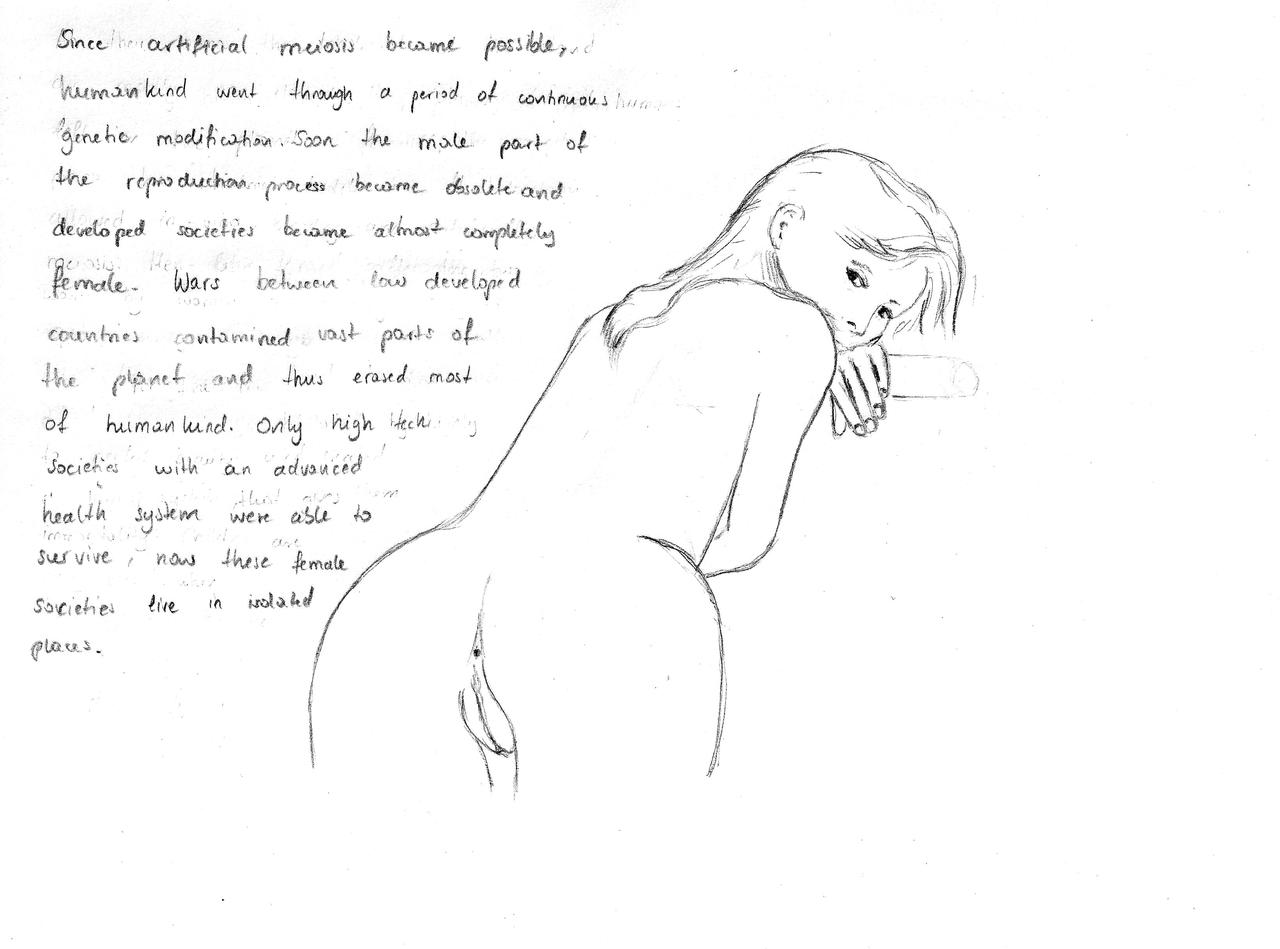 Since artificial meiosis became possible,
humankind went through a period of continuous
genetic modification. Soon the male part of
the reproduction process became obsolete and
developed societies became almost completely
female. Wars between low developed
countries contaminated vast parts of
the planet and thus erased most
of humankind. Only high tech
societies with an advanced
health system were able to
survive, now these female
societies live in isolated
places.